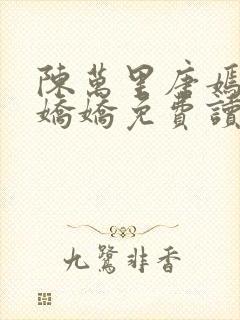 陳萬里唐嫣
嬌嬌免費讀
九鷺非香